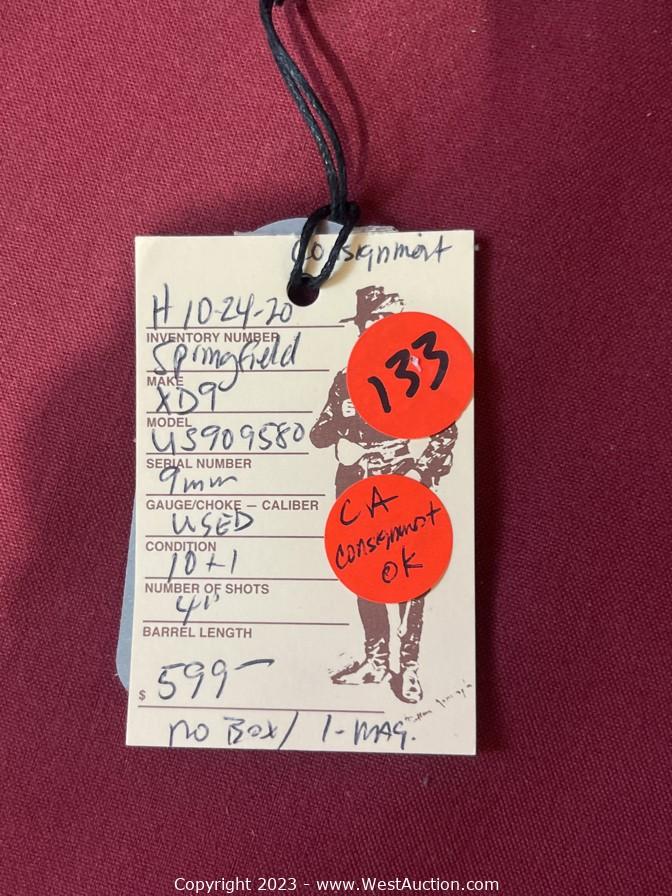 Consignment
H 10-24-20
INVENTORY NUMBER
Springfield
MAKE
XD9
MODEL
US909580
SERIAL NUMBER
9mm
GAUGE/CHOKE — CALIBER
USED
CONDITION
10+1
NUMBER OF SHOTS
4"
BARREL LENGTH
$ 599-
NO BOX/ 1-MAG.
133
CA
Consignment
OK
Copyright 2023 - www.WestAuction.com